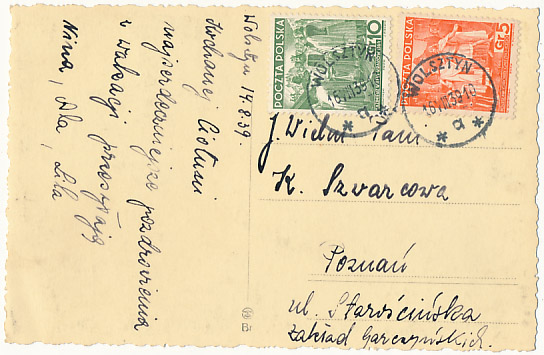 Wolsztyn 14.8.39.
Kochanej Cioluni
najserdeczniejsze pozdrowienia
z wakacji przesyłają
Nina, Ala, Lila
POCZTA POLSKA
10
GR
POCZTA POLSKA
5
GR
WOLSZTYN
* a *
WOLSZTYN
16.VIII.39.10
* a *
J. Wielm. Pani
K. Szwarcowa
Poznań
ul. Starościńska
Zakład Garczyńskich.